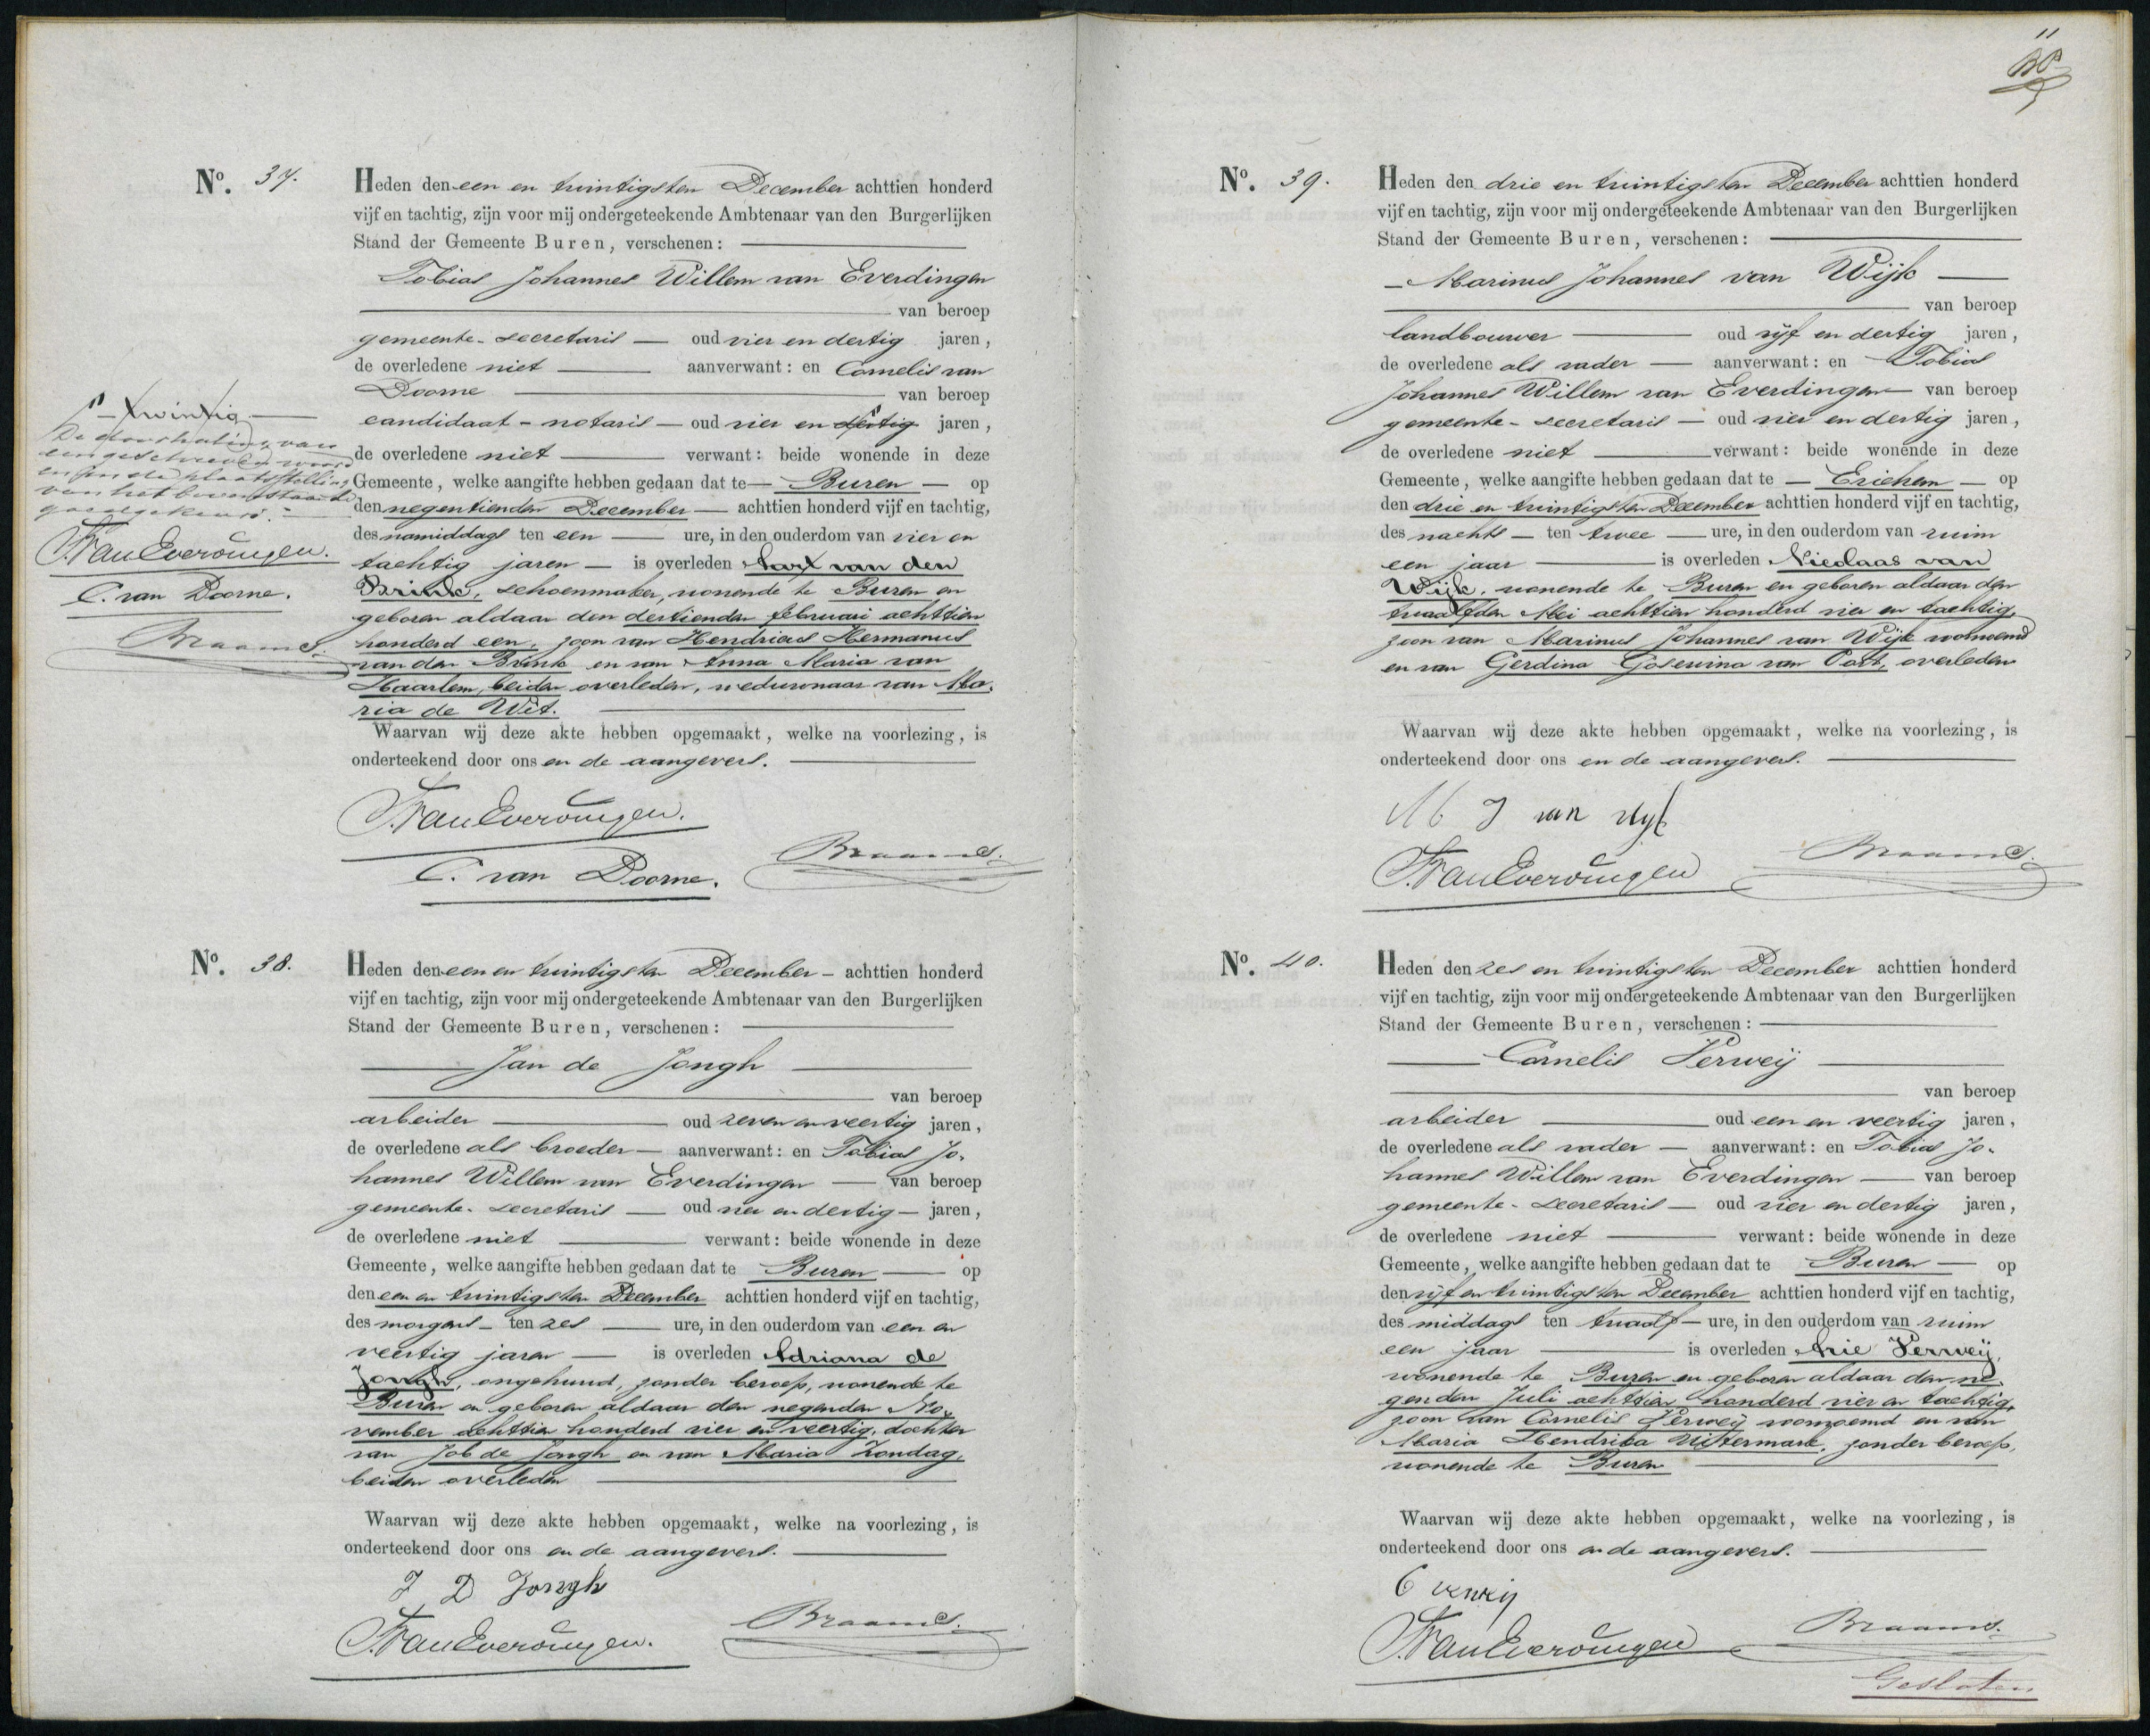 No. 37.
Heden den een en twintigsten December achttien honderd
vijf en tachtig, zijn voor mij ondergeteekende Ambtenaar van den Burgerlijken
Stand der Gemeente Buren, verschenen:
Tobias Johannes Willem van Everdingen
van beroep
gemeente-secretaris oud vier en dertig jaren,
de overledene niet aanverwant: en Cornelis van
Doorne van beroep
candidaat-notaris oud vier en dertig jaren,
de overledene niet verwant: beide wonende in deze
Gemeente, welke aangifte hebben gedaan dat te Buren op
den negentienden December achttien honderd vijf en tachtig,
des namiddags ten een ure, in den ouderdom van vier en
tachtig jaren is overleden Aart van den
Brink, schoenmaker, wonende te Buren en
geboren aldaar den dertienden februari achttien
honderd een, zoon van Hendricus Hermanus
van den Brink en van Anna Maria van
Haarlem, beiden overleden, weduwnaar van Ma-
ria de Wit.
Waarvan wij deze akte hebben opgemaakt, welke na voorlezing, is
onderteekend door ons en de aangevers.
T. van Everdingen.
C. van Doorne. Braams.
twintig
De doorhaling van
een geschreven woord
en in de plaatsstelling
van het bovenstaande
goedgekeurd.
T. van Everdingen.
C. van Doorne.
Braams.
No. 38.
Heden den een en twintigsten December achttien honderd
vijf en tachtig, zijn voor mij ondergeteekende Ambtenaar van den Burgerlijken
Stand der Gemeente Buren, verschenen:
Jan de Jongh
van beroep
arbeider oud zeven en veertig jaren,
de overledene als broeder aanverwant: en Tobias Jo-
hannes Willem van Everdingen van beroep
gemeente-secretaris oud vier en dertig jaren,
de overledene niet verwant: beide wonende in deze
Gemeente, welke aangifte hebben gedaan dat te Buren op
den een en twintigsten December achttien honderd vijf en tachtig,
des morgens ten zes ure, in den ouderdom van een en
veertig jaren is overleden Adriana de
Jongh, ongehuwd, zonder beroep, wonende te
Buren en geboren aldaar den negenden No-
vember achttien honderd vier en veertig, dochter
van Job de Jongh en van Maria Zondag,
beiden overleden
Waarvan wij deze akte hebben opgemaakt, welke na voorlezing, is
onderteekend door ons en de aangevers.
J D Jongh
T. van Everdingen. Braams.
No. 39.
Heden den drie en twintigsten December achttien honderd
vijf en tachtig, zijn voor mij ondergeteekende Ambtenaar van den Burgerlijken
Stand der Gemeente Buren, verschenen:
Marinus Johannes van Wijk
van beroep
landbouwer oud vijf en dertig jaren,
de overledene als vader aanverwant: en Tobias
Johannes Willem van Everdingen van beroep
gemeente-secretaris oud vier en dertig jaren,
de overledene niet verwant: beide wonende in deze
Gemeente, welke aangifte hebben gedaan dat te Erichem op
den drie en twintigsten December achttien honderd vijf en tachtig,
des nachts ten twee ure, in den ouderdom van ruim
een jaar is overleden Nicolaas van
Wijk, wonende te Buren en geboren aldaar den
twaalfden Mei achttien honderd vier en tachtig,
zoon van Marinus Johannes van Wijk voornoemd
en van Gerdina Gosewina van Oort, overleden
Waarvan wij deze akte hebben opgemaakt, welke na voorlezing, is
onderteekend door ons en de aangevers.
M J van Wyk
T. van Everdingen Braams.
No. 40.
Heden den zes en twintigsten December achttien honderd
vijf en tachtig, zijn voor mij ondergeteekende Ambtenaar van den Burgerlijken
Stand der Gemeente Buren, verschenen:
Cornelis Verweij
van beroep
arbeider oud een en veertig jaren,
de overledene als vader aanverwant: en Tobias Jo-
hannes Willem van Everdingen van beroep
gemeente-secretaris oud vier en dertig jaren,
de overledene niet verwant: beide wonende in deze
Gemeente, welke aangifte hebben gedaan dat te Buren op
den vijf en twintigsten December achttien honderd vijf en tachtig,
des middags ten twaalf ure, in den ouderdom van ruim
een jaar is overleden Arie Verweij,
wonende te Buren en geboren aldaar den ne-
genden Juli achttien honderd vier en tachtig,
zoon van Cornelis Verweij voornoemd en van
Maria Hendrika Uittermark, zonder beroep,
wonende te Buren
Waarvan wij deze akte hebben opgemaakt, welke na voorlezing, is
onderteekend door ons en de aangevers.
C verweij
T. van Everdingen Braams.
Gesloten